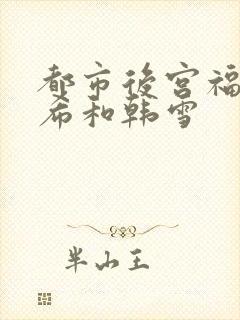 都市後宫福
希和韩雪
半山王